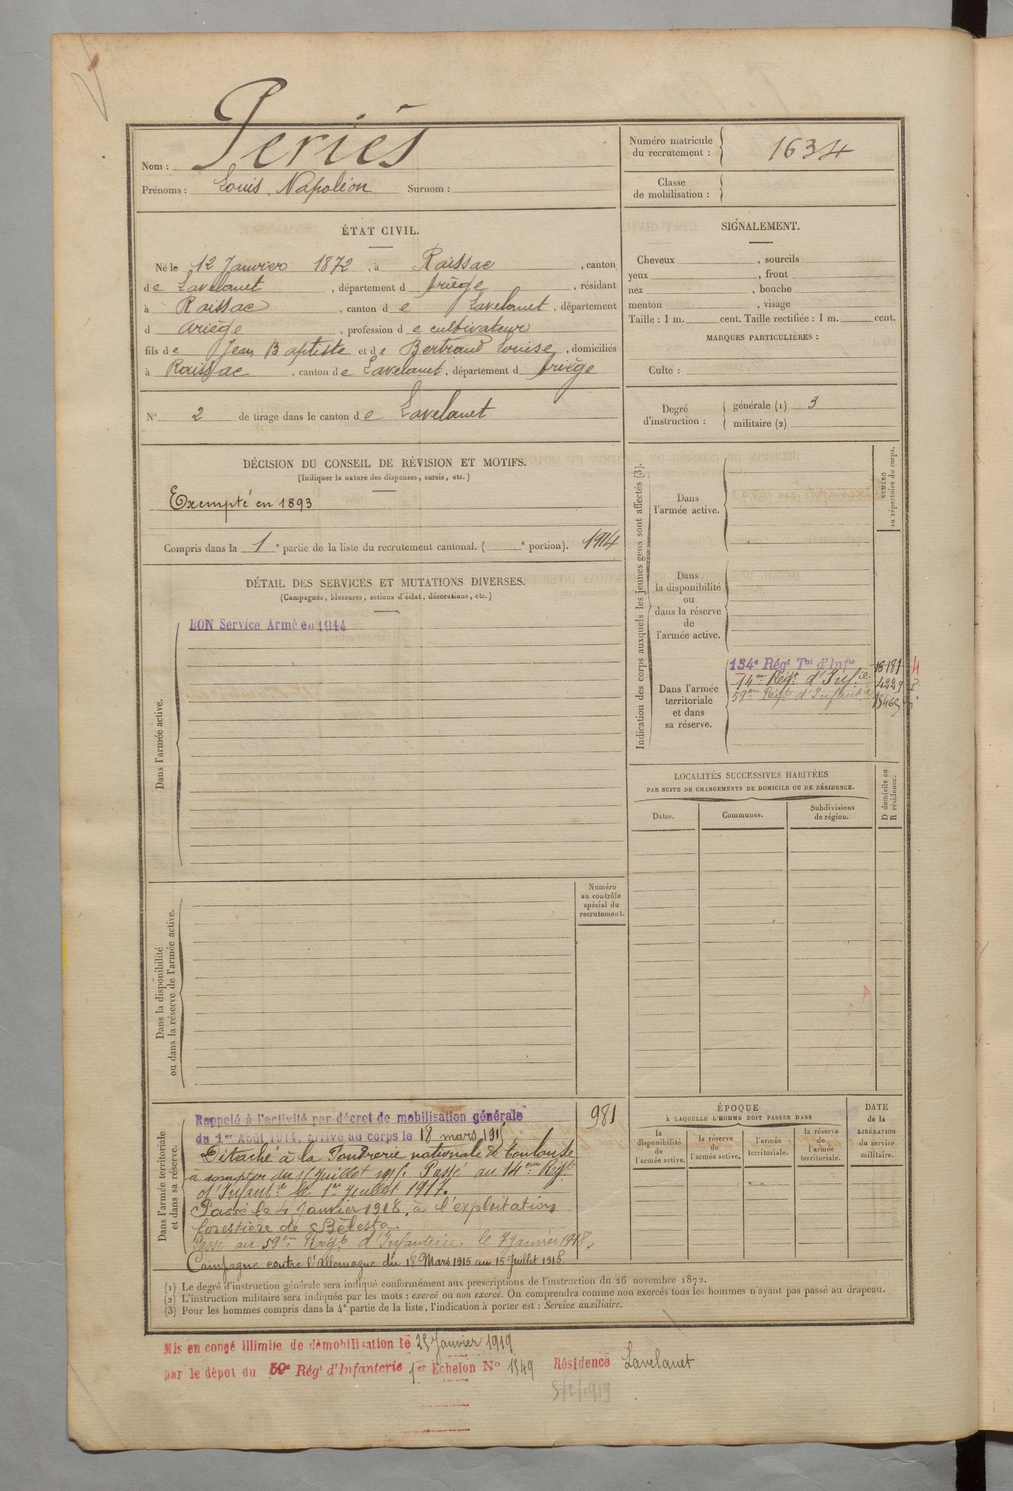 Nom : Periés
Prénoms : Louis Napoléon Surnom :
Numéro matricule du recrutement : 1634
Classe de mobilisation :
ÉTAT CIVIL.
Né le 12 Janvier 1872, à Raissac, canton
de Lavelanet, département d Ariège, résidant
à Raissac, canton de Lavelanet, département
d Ariège, profession de cultivateur
fils de Jean Baptiste et de Bertrand Louise, domiciliés
à Raissac, canton de Lavelanet, département d Ariège
N° 2 de tirage dans le canton de Lavelanet
SIGNALEMENT.
Cheveux , sourcils
yeux , front
nez , bouche
menton , visage
Taille : 1 m. cent. Taille rectifiée : 1 m. cent.
MARQUES PARTICULIÈRES :
Culte :
Degré d'instruction : générale (1) 3
militaire (2)
DÉCISION DU CONSEIL DE RÉVISION ET MOTIFS.
(Indiquer la nature des dispenses, sursis, etc.)
Exempté en 1893
Compris dans la 1e partie de la liste du recrutement cantonal. ( e portion). 1914
DÉTAIL DES SERVICES ET MUTATIONS DIVERSES.
(Campagnes, blessures, actions d'éclat, décorations, etc.)
Dans l'armée active.
BON Service Armé en 1914
Indication des corps auxquels les jeunes gens sont affectés (3).
NUMÉRO au répertoire du corps.
Dans l'armée active.
Dans la disponibilité ou dans la réserve de l'armée active.
Dans l'armée territoriale et dans sa réserve.
134e Régt Tal d'Infie 18181
14me Régt d'Infie 4229
59me Régt d'Infanterie
LOCALITÉS SUCCESSIVES HABITÉES
PAR SUITE DE CHANGEMENTS DE DOMICILE OU DE RÉSIDENCE.
Dates. Communes. Subdivisions de région.
D domicile ou R résidence.
Dans la disponibilité ou dans la réserve de l'armée active.
Numéro au contrôle spécial du recrutement.
981
Dans l'armée territoriale et dans sa réserve.
Rappelé à l'activité par décret de mobilisation générale
du 1er Août 1914, arrivé au corps le 18 mars 1915
Détaché à la Poudrerie nationale de Toulouse
à compter du 15 Juillet 1915. Passé au 14eme Régt
d'Infantie le 1er Juillet 1917.
Passé le 4 Janvier 1918, à l'exploitation
forestière de Bélesta
Passé au 59eme Régt d'Infanterie le 7 janvier 1918.
Campagne contre l'Allemagne du 18 Mars 1915 au 15 Juillet 1915
ÉPOQUE
À LAQUELLE L'HOMME DOIT PASSER DANS
la disponibilité de l'armée active.
la réserve de l'armée active.
l'armée territoriale.
la réserve de l'armée territoriale.
DATE de la LIBÉRATION du service militaire.
(1) Le degré d'instruction générale sera indiqué conformément aux prescriptions de l'instruction du 26 novembre 1872.
(2) L'instruction militaire sera indiquée par les mots : exercé ou non exercé. On comprendra comme non exercés tous les hommes n'ayant pas passé au drapeau.
(3) Pour les hommes compris dans la 4e partie de la liste, l'indication à porter est : Service auxiliaire.
Mis en congé illimité de démobilisation le 25 Janvier 1919
par le dépôt du 59e Régt d'Infanterie 1er Echelon N° 1549 Résidence Lavelanet
5/2/1919